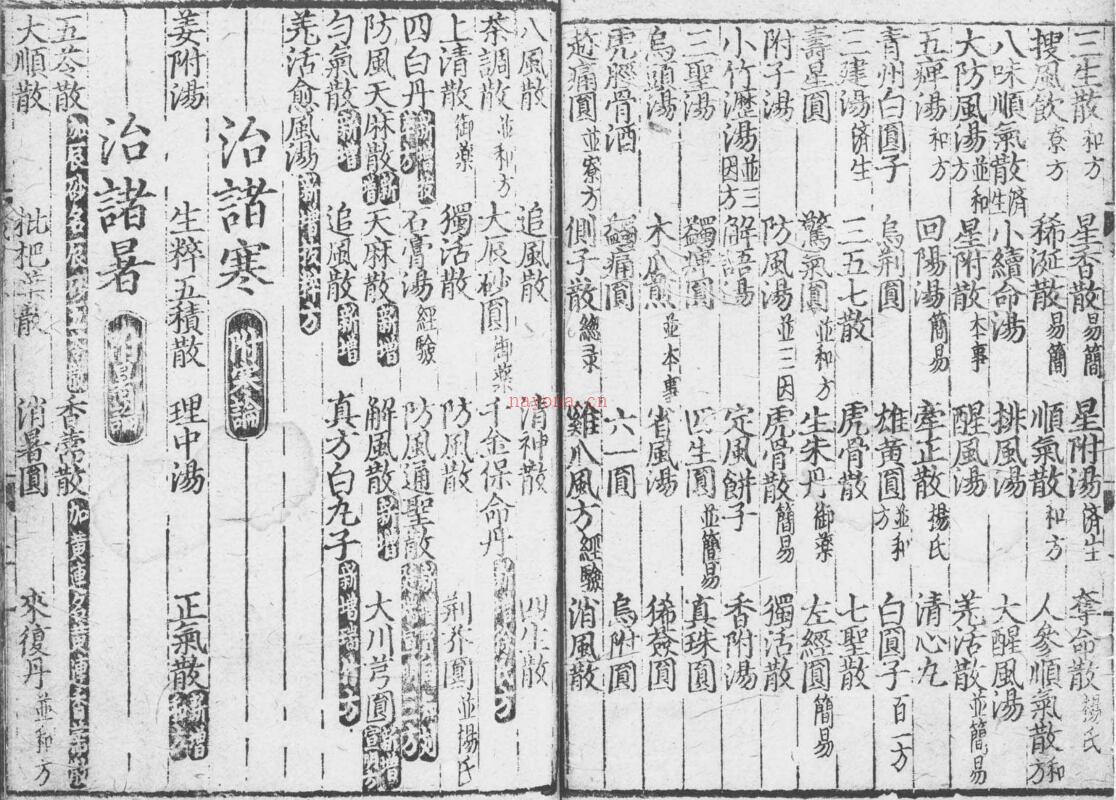 三生散和方 星香散易簡 星附湯済生 奪命散楊氏
搜風飲寮方 稀涎散易簡 順氣散和方 人參順氣散和方
八味順氣散済生 小續命湯 排風湯 大醒風湯
大防風湯並和方 星附散本事 醒風湯 羌活散並簡易
五痺湯和方 回陽湯簡易 牽正散楊氏 清心丸
青州白圓子 烏荆圓 雄黄圓並和方 白圓子百一方
三建湯済生 三五七散 虎骨散 七聖散
壽星圓 驚氣圓並和方 生朱丹御藥 左經圓簡易
附子湯 防風湯並三因 虎骨散簡易 獨活散
小竹瀝湯並三因方 解語湯 定風餅子 香附湯
三聖湯 蠲痺圓 四生圓並簡易 真珠圓
烏頭湯 木瓜煎並本事 省風湯 豨薟圓
虎脛骨酒 蠲痛圓 六一圓 烏附圓
趂痛圓並寮方 側子散總录 雞八風方經驗 消風散
八風散 追風散 清神散 四生散
茶調散並和方 大辰砂圓御藥 千金保命丹
上清散御藥 獨活散 防風散 荆芥圓並楊氏
四白丹 石膏湯經驗 防風通聖散
防風天麻散新增 天麻散新增 解風散新增 大川芎圓新增宣明方
匀氣散新增 追風散新增 真方白丸子新增瑞竹方
羌活愈風湯新增拔粹方
治諸寒 附寒論
姜附湯 生料五積散 理中湯 正氣散
治諸暑 附暑論
五苓散加辰砂名辰砂五苓散 香薷散加黄連名黄連香薷散
大順散 枇杷葉散 消暑圓 來復丹並和方
nayona.cn